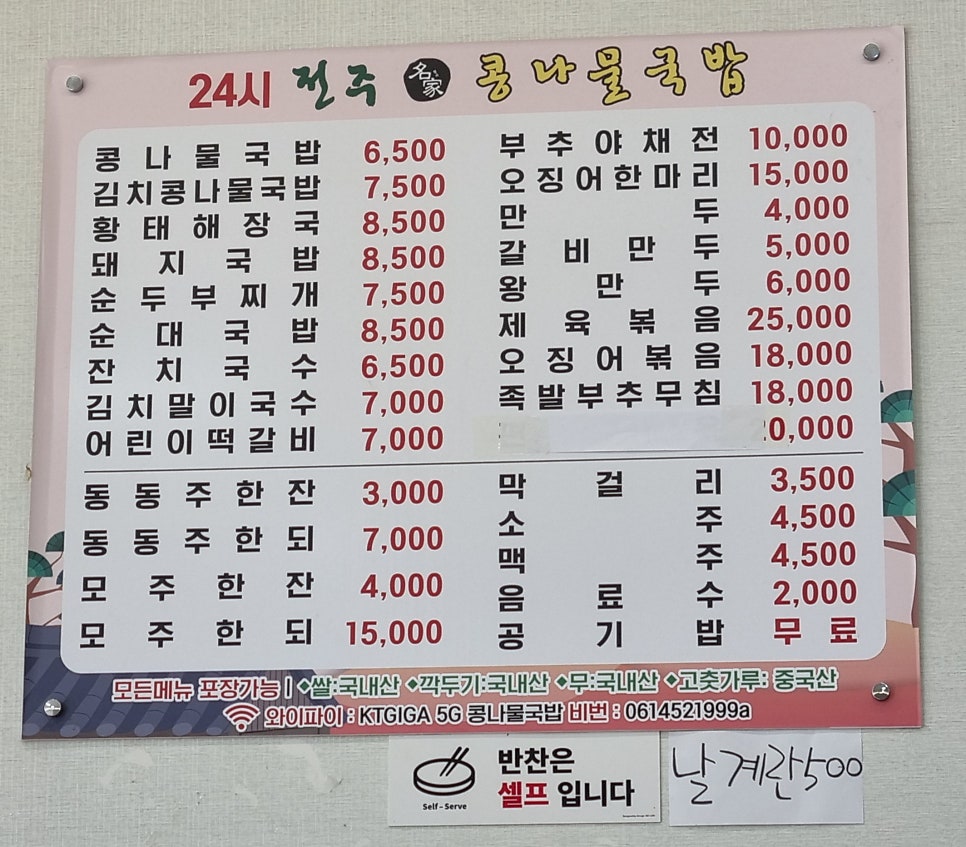 24시 전주 名家 콩나물국밥
콩나물국밥 6,500
김치콩나물국밥 7,500
황태해장국 8,500
돼지국밥 8,500
순두부찌개 7,500
순대국밥 8,500
잔치국수 6,500
김치말이국수 7,000
어린이떡갈비 7,000
동동주한잔 3,000
동동주한되 7,000
모주한잔 4,000
모주한되 15,000
부추야채전 10,000
오징어한마리 15,000
만두 4,000
갈비만두 5,000
왕만두 6,000
제육볶음 25,000
오징어볶음 18,000
족발부추무침 18,000
20,000
막걸리 3,500
소주 4,500
맥주 4,500
음료수 2,000
공기밥 무료
모든메뉴 포장가능 | ◆쌀:국내산 ◆깍두기:국내산 ◆무:국내산 ◆고춧가루: 중국산
와이파이 : KTGIGA 5G 콩나물국밥 비번 : 0614521999a
반찬은
셀프 입니다
Self-Serve
날계란500